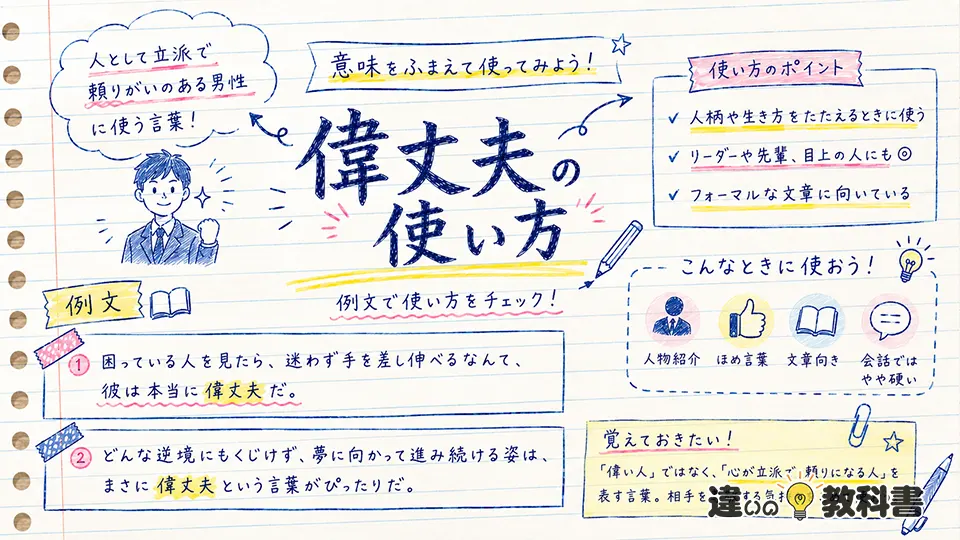 人として立派で
頼りがいのある男性
に使う言葉！
意味をふまえて使ってみよう！
偉丈夫の
使い方
例文で使い方をチェック！
使い方のポイント
✓ 人柄や生き方をたたえるときに使う
✓ リーダーや先輩、目上の人にも◎
✓ フォーマルな文章に向いている
こんなときに使おう！
人物紹介
ほめ言葉
文章向き
会話では
やや硬い
例文
① 困っている人を見たら、迷わず手を差し伸べるなんて、
彼は本当に偉丈夫だ。
② どんな逆境にもくじけず、夢に向かって進み続ける姿は、
まさに偉丈夫という言葉がぴったりだ。
覚えておきたい！
「偉い人」ではなく、「心が立派で」頼りになる人」を
表す言葉。相手を
する気
違いの教科書